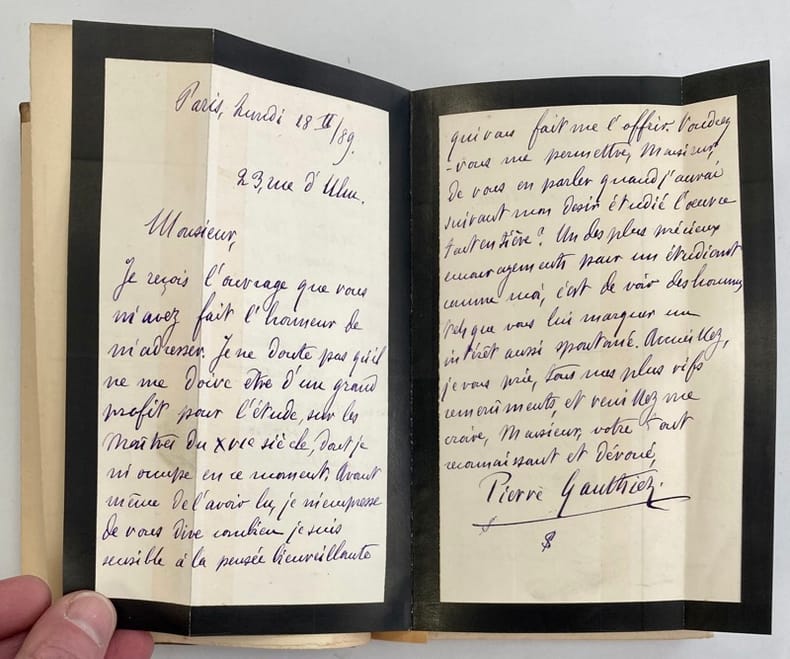 Paris, Lundi 18 II/89.
23, rue d'Ulm.
Monsieur,
Je reçois l'ouvrage que vous
m'avez fait l'honneur de
m'adresser. Je ne doute pas qu'il
ne me doive être d'un grand
profit pour l'étude, sur les
maîtres du XVIe siècle, dont je
m'occupe en ce moment. Avant
même de l'avoir lu, je m'empresse
de vous dire combien je suis
sensible à la pensée bienveillante
qui vous fait me l'offrir. Voudrez
-vous me permettre, Monsieur,
de vous en parler quand j'aurai
suivant mon désir étudié l'œuvre
tout entière? Un des plus précieux
encouragements pour un étudiant
comme moi, c'est de voir des hommes
tels que vous lui marquer un
intérêt aussi spontané. Accueillez,
je vous prie, tous mes plus vifs
remerciements, et veuillez me
croire, Monsieur, votre tout
reconnaissant et dévoué,
Pierre Gauthiez.